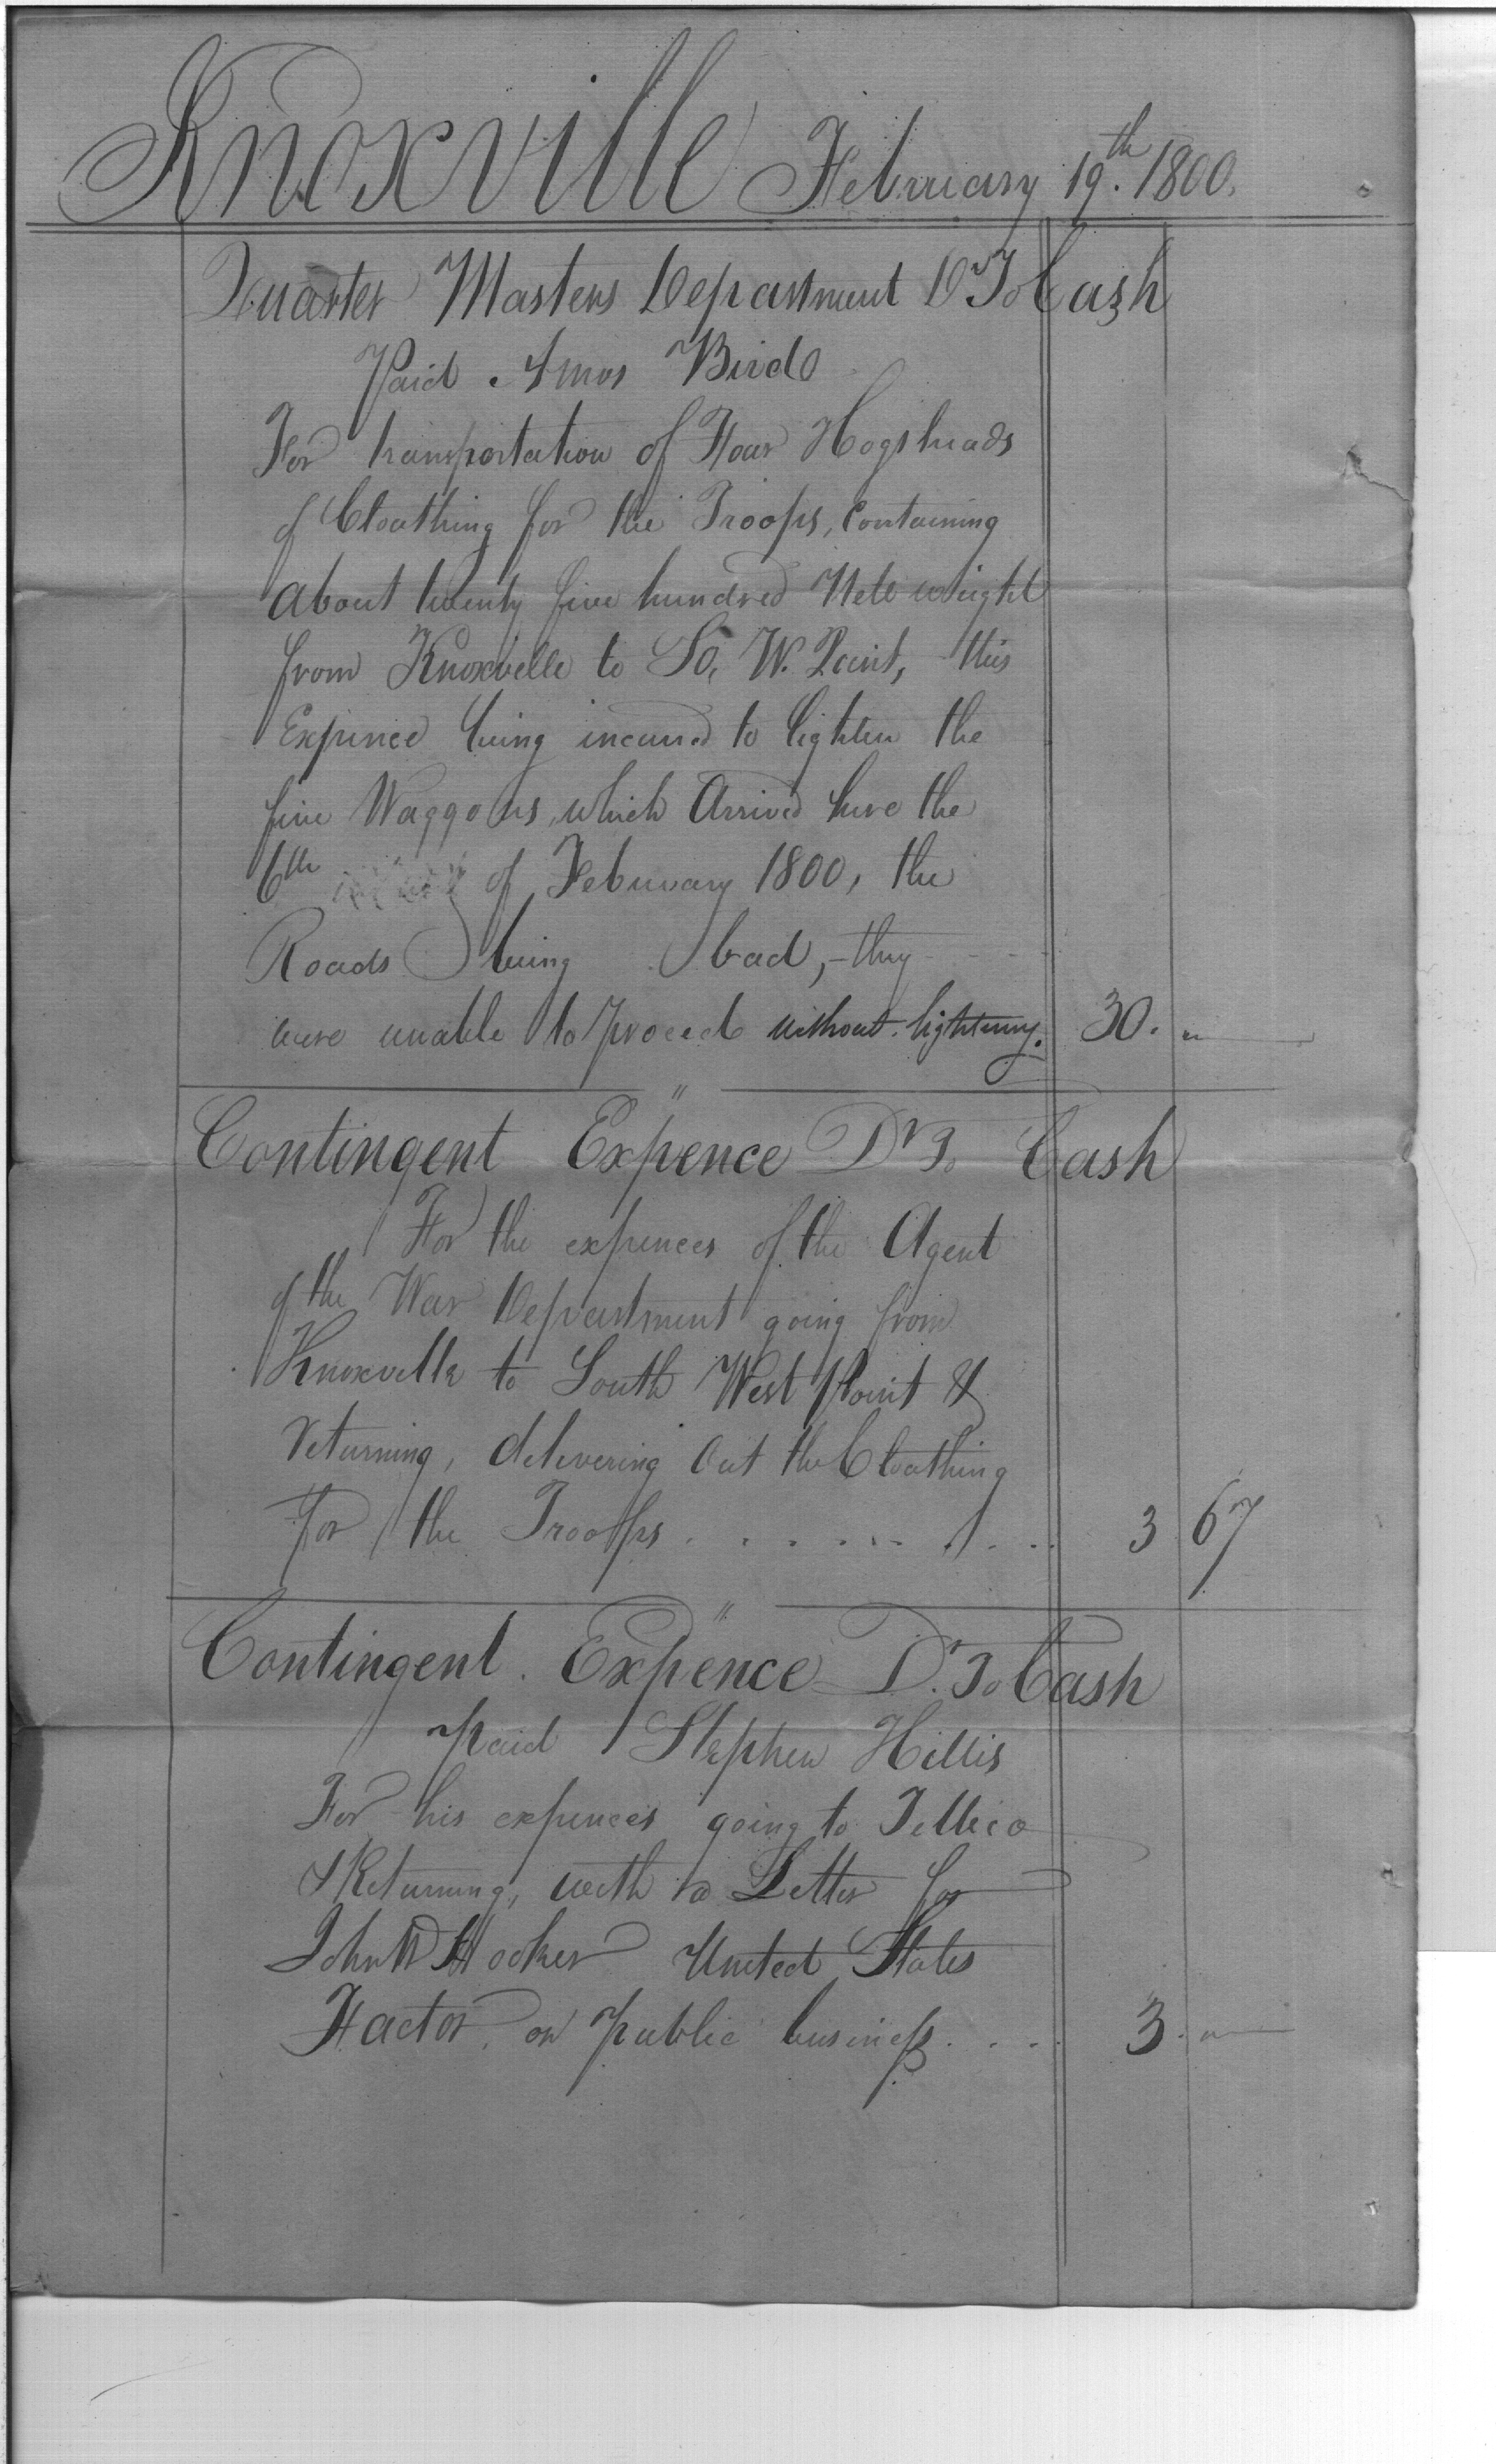 Knoxville February 19th. 1800.
Quarter Masters Department Dr To Cash
Paid Amos Bird
For transportation of Four Hogsheads
of Cloathing for the Troops, Containing
about twenty five hundred Nett weight
from Knoxville to So, W. Point, this
Expence being incurred to lighten the
five Waggons, which Arrived here the
6th of February 1800, the
Roads being bad, - they - - -
were unable to proceed without lightening. 30. "
"
Contingent Expence Dr To Cash
For the expences of the Agent
of the War Department going from
Knoxville to South West Point &
returning, delivering Out the Cloathing
For the Troops . . . . . . . . . 3 67
"
Contingent Expence Dr. To Cash
paid Stephen Hillis
For his expences going to Tellico
& Returning, with a Letter for
John W Hooker United States
Factor on public business . . . . 3. "